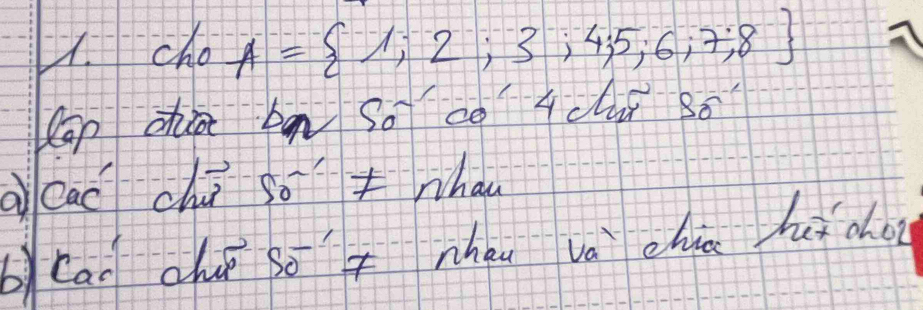 1. cho A = { 1; 2; 3; 4; 5; 6; 7; 8 }
lập được bn số có 4 chữ số
a) Các chữ số ≠ nhau
b) Các chữ số ≠ nhau và chia hết cho 2